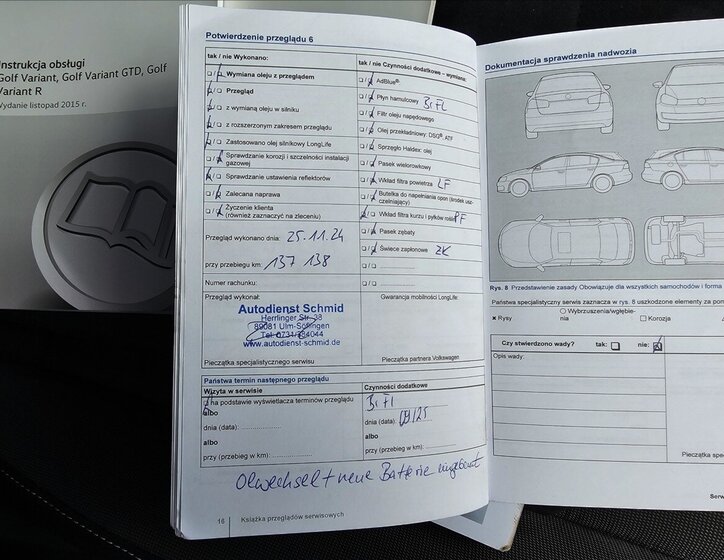 Instrukcja obsługi
Golf Variant, Golf Variant GTD, Golf
Variant R
Wydanie listopad 2015 r.
Potwierdzenie przeglądu 6
tak / nie Wykonano:
Wymiana oleju z przeglądem
Przegląd
z wymianą oleju w silniku
z rozszerzonym zakresem przeglądu
Zastosowano olej silnikowy LongLife
Sprawdzanie korozji i szczelności instalacji
gazowej
Sprawdzanie ustawienia reflektorów
Zalecana naprawa
Życzenie klienta
(również zaznaczyć na zleceniu)
Przegląd wykonano dnia: 25.11.24
przy przebiegu km: 137 138
Numer rachunku:
Przegląd wykonał:
Autodienst Schmid
Herrlinger Str. 38
89081 Ulm-Söflingen
Tel. 0731/384044
www.autodienst-schmid.de
Pieczątka specjalistycznego serwisu
tak / nie Czynności dodatkowe – wymiana:
AdBlue®
Płyn hamulcowy BiFl
Filtr oleju napędowego
Olej przekładniowy: DSG®, ATF
Sprzęgło Haldex: olej
Pasek wielorowkowy
Wkład filtra powietrza LF
Butelka do napełniania opon (środek usz-
czelniający)
Wkład filtra kurzu i pyłków roślin PF
Pasek zębaty
Świece zapłonowe ZK
Gwarancja mobilności LongLife:
Pieczątka partnera Volkswagen
Państwa termin następnego przeglądu
Wizyta w serwisie
na podstawie wyświetlacza terminów przeglądu
albo
dnia (data):
albo
przy (przebieg w km):
Czynności dodatkowe
BiFl
dnia (data): 08/25
albo
przy (przebieg w km):
Ölwechsel + neue Batterie eingebaut
16 Książka przeglądów serwisowych
Dokumentacja sprawdzenia nadwozia
Rys. 8 Przedstawienie zasady Obowiązuje dla wszystkich samochodów i forma
Państwa specjalistyczny serwis zaznacza w rys. 8 uszkodzone elementy za pom
Rysy
Wybrzuszenia/wgłębie-
nia
Korozja
Czy stwierdzono wady? tak: nie:
Opis wady:
Pieczątka spe
Serw